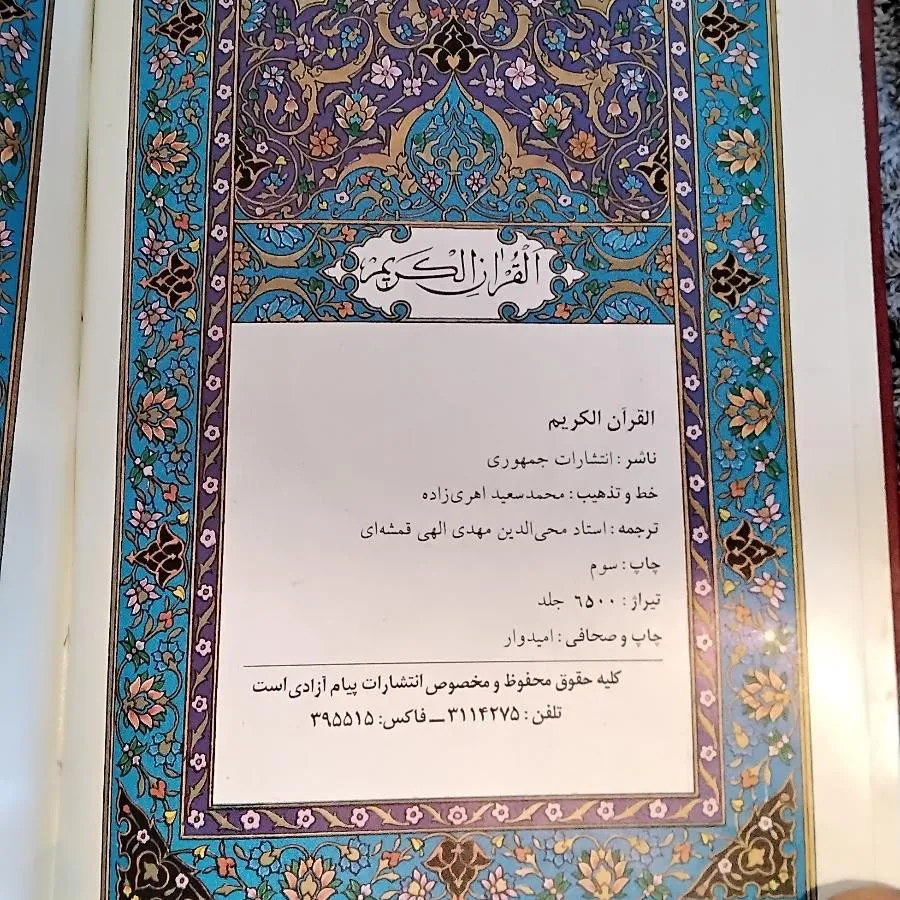 الْقُرْاٰنِ الْكَرِیْم
القرآن الکریم
ناشر : انتشارات جمهوری
خط و تذهیب : محمدسعید اهری‌زاده
ترجمه : استاد محی‌الدین مهدی الهی قمشه‌ای
چاپ : سوم
تیراژ : ۶۵۰۰ جلد
چاپ و صحافی : امیدوار
کلیه حقوق محفوظ و مخصوص انتشارات پیام آزادی است
تلفن : ۳۱۱۴۲۷۵ ــ فاکس : ۳۹۵۵۱۵